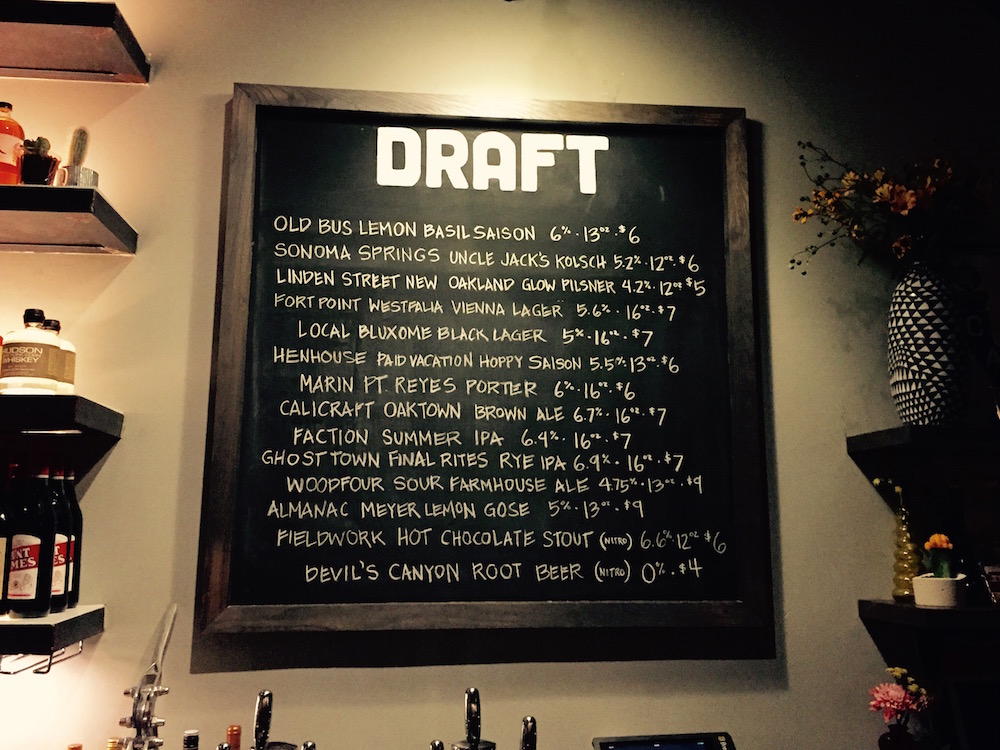 DRAFT
OLD BUS LEMON BASIL SAISON 6%·13oz·$6
SONOMA SPRINGS UNCLE JACK'S KOLSCH 5.2%·12oz·$6
LINDEN STREET NEW OAKLAND GLOW PILSNER 4.2%·12oz $5
FORT POINT WESTFALIA VIENNA LAGER 5.6%·16oz·$7
LOCAL BLUXOME BLACK LAGER 5%·16oz·$7
HENHOUSE PAID VACATION HOPPY SAISON 5.5%·13oz·$6
MARIN PT. REYES PORTER 6%·16oz·$6
CALICRAFT OAKTOWN BROWN ALE 6.7%·16oz·$7
FACTION SUMMER IPA 6.4%·16oz·$7
GHOST TOWN FINAL RITES RYE IPA 6.9%·16oz·$7
WOODFOUR SOUR FARMHOUSE ALE 4.75%·13oz·$9
ALMANAC MEYER LEMON GOSE 5%·13oz·$9
FIELDWORK HOT CHOCOLATE STOUT (NITRO) 6.6%·12oz·$6
DEVIL'S CANYON ROOT BEER (NITRO) 0%·$4
HUDSON
WHISKEY